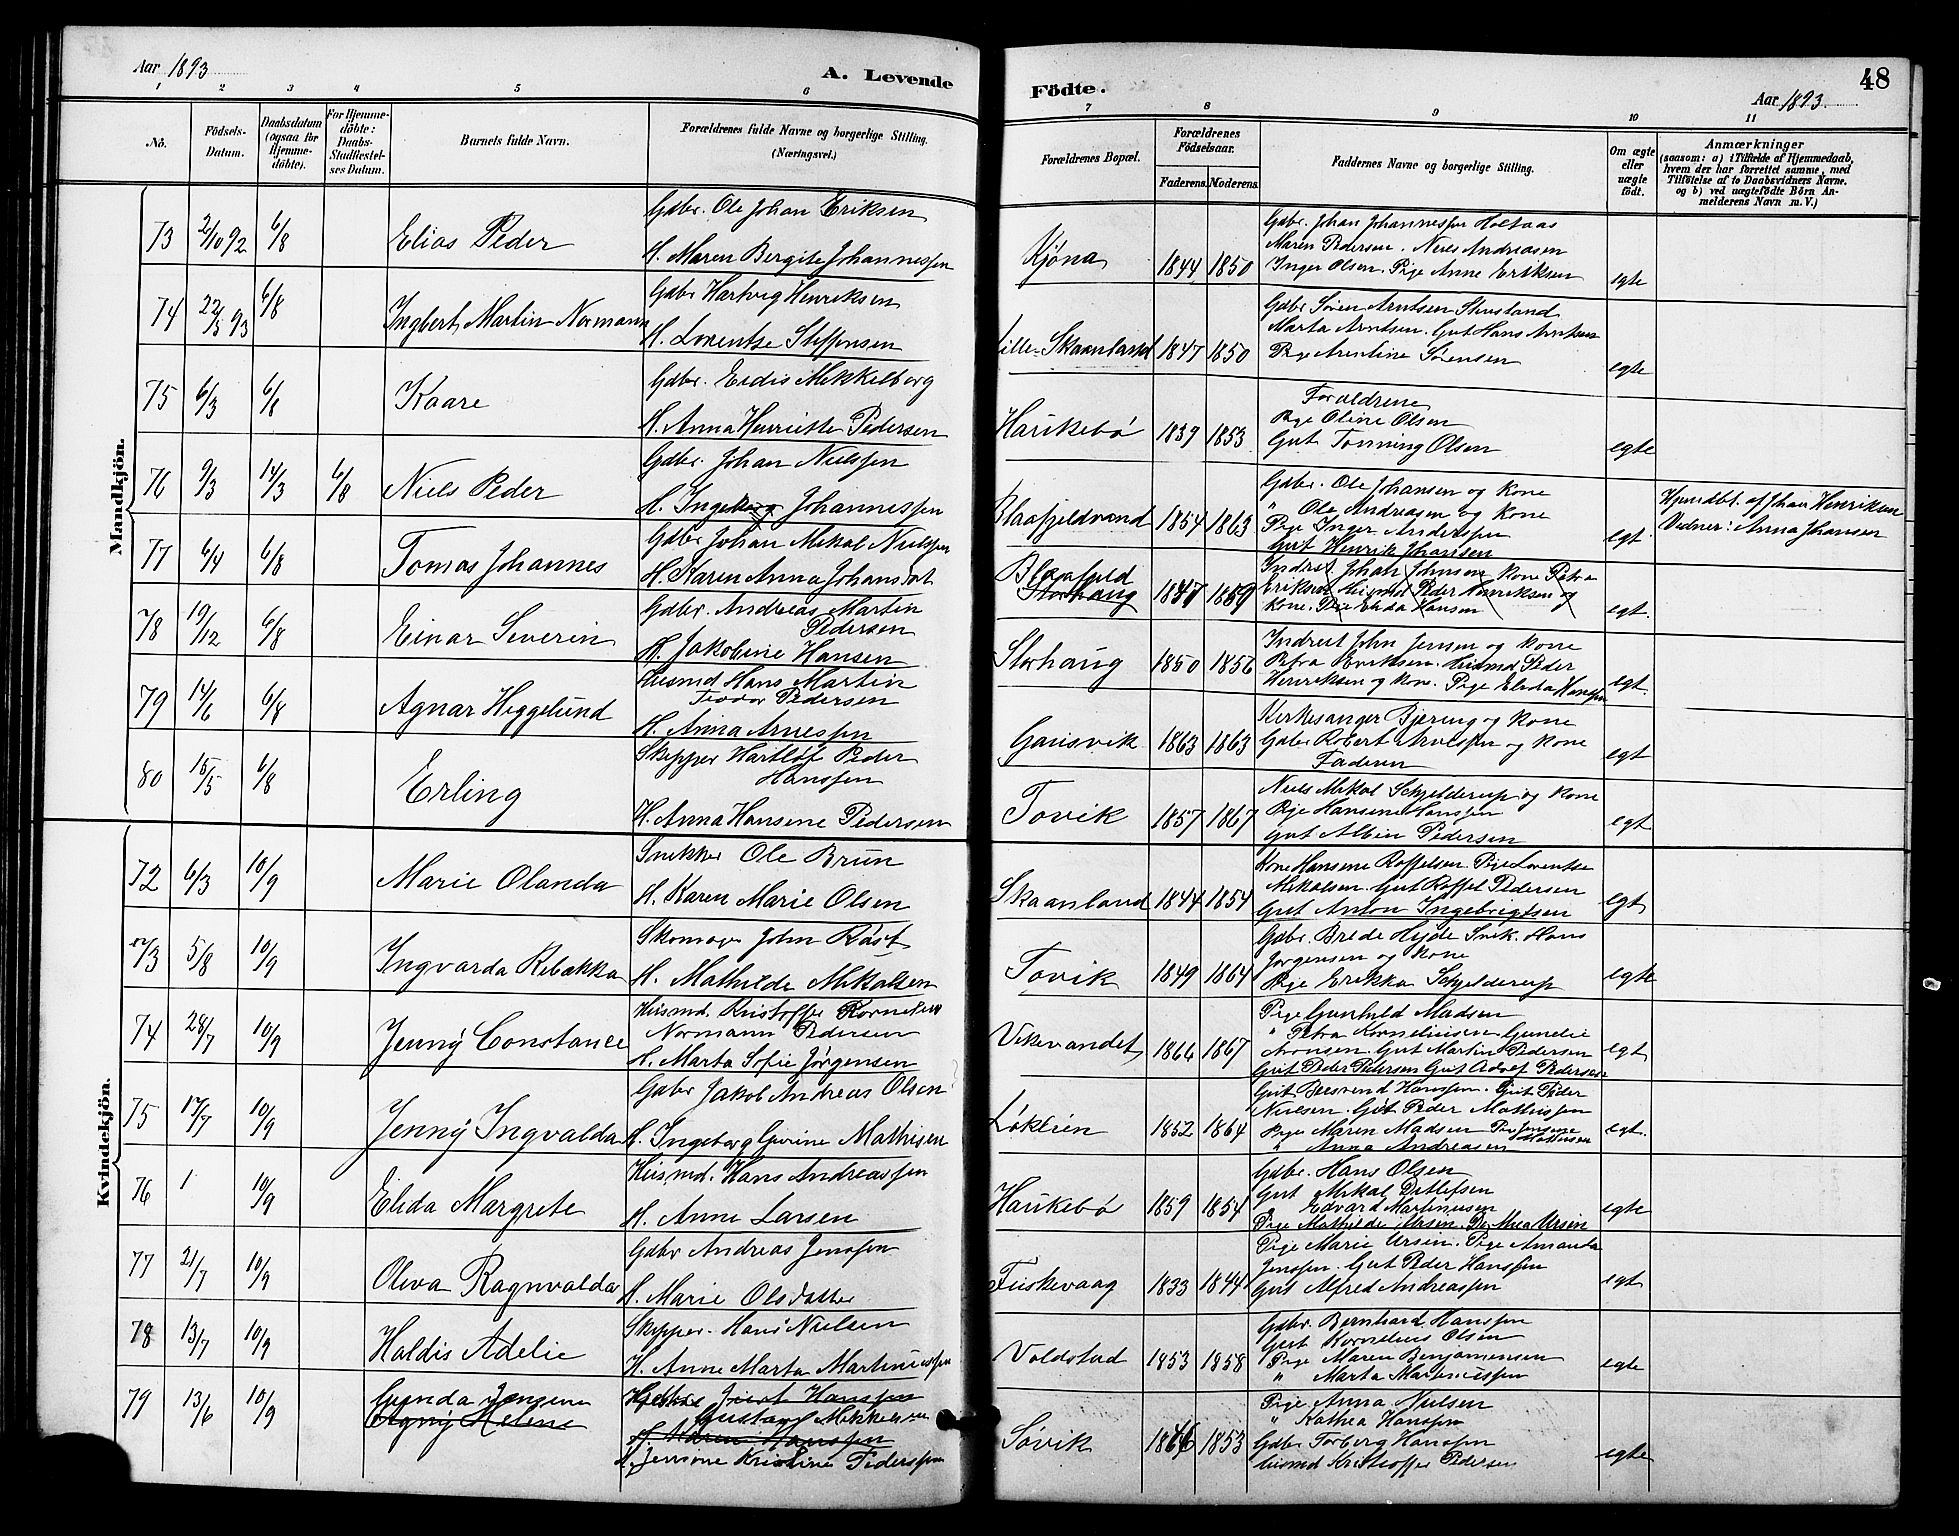 Aar 1893
A. Levende
Födte.
Aar 1893.
48
1 2 3 4 5 6 7 8 9 10 11
No.
Födsels-
Datum.
Daabsdatum
(ogsaa for
Hjemme-
döbte).
For Hjemme-
döbte:
Daabs-
Stadfæstel-
ses Datum.
Barnets fulde Navn.
Forældrenes fulde Navne og borgerlige Stilling.
(Næringsvei.)
Forældrenes Bopæl.
Forældrenes
Födselsaar.
Faderens. Moderens.
Faddernes Navne og borgerlige Stilling.
Om ægte
eller
uægte
födt.
Anmærkninger
(saasom: a) i Tilfælde af Hjemmedaab,
hvem der har forrettet samme, med
Tilföielse af to Daabsvidners Navne.
og b) ved uægtefödte Börn An-
melderens Navn m. V.)
Mandkjön.
73 2/10 92 6/8 Elias Peder
Gdbr. Ole Johan Eriksen
H. Maren Bergite Johannessen
Kjøna 1844 1850
Gdbr. Johan Johannessen Holtaas
Maren Pedersen. Niels Andreasen
Inger Olsen. Pige Anne Eriksen
egte
74 22/3 93 6/8 Ingbert Martin Normann
Gdbr Hartvig Henriksen
H. Lorentse Steffensen
Lille-Skaanland 1847 1850
Gdbr Søren Arntsen
Marta Arntsen. Gut Hans Arntsen
Pige Arentine Sørensen
egte
75 6/3 6/8 Kaare
Gdbr. Eidis Mekkelborg
H. Anna Henriette Pedersen
Haukebø 1839 1853
Forældrene
Pige Oline Olsen
Gut Tønning Olsen
egte
76 9/3 14/3 6/8 Niels Peder
Gdbr. Johan Nielssen
H. Ingeborg Johannessen
Blaafjeldvand 1854 1863
Gdbr. Ole Johansen og Kone
" Ole Andreasen og Kone
Pige Inger Anderssen
Gut Henrik Johansen
egt.
Hjemdbt. af Johan Henriksen
Vidner: Anna Johansen
77 6/4 6/8 Tomas Johannes
Gdbr Johan Mikal Nielssen
H. Karen Anna Johansdat
Blaafjeld
Storhaug 1847 1859
Indrst. Johan Johnsen Kone Petra
Eriksen Husmd Peder Henriksen og
Kone. Pige Elida Hansen
egt.
78 19/12 6/8 Einar Severin
Gdbr. Andreas Martin
Pedersen
H. Jakobine Hansen
Storhaug 1850 1856
Indrest John Jensen og Kone
Petra Eriksen. Husmd Peder
Henriksen og Kone. Pige Elida Hanssen
egt.
79 14/6 6/8 Agnar Heggelund
Husmd Hans Martin
Teodor Pedersen
H. Anna Arnessen
Gausvik 1863 1863
Kirkesanger Bjering og Kone
Gdbr Robert Arnessen og Kone
Faderen
egt
80 15/5 6/8 Erling
Skipper Hartløf Peder
Hanssen
H. Anna Hansene Pedersen
Tovik 1857 1867
Niels Mikal Schjelderup og Kone
Pige Hansene Hanssen
Gut Albin Pedersen
egt
Kvindekjön.
72 6/3 10/9 Marie Olanda
Snekker Ole Brun
H. Karen Marie Olsen
Skaanland 1844 1854
Kone Hansene Roffelsen. Pige Lorentse
Mikalsen. Gut Roffel Pedersen
Gut Anton Ingebrigtsen
egt
73 5/8 10/9 Ingvarda Rebekka
Skomager John Røst
H. Mathilde Mikalsen
Tovik 1849 1864
Gdbr. Brede Hyde Snik. Hans
Jørgensen og Kone
Pige Erikka Schjelderup
egte
74 28/7 10/9 Jenny Constance
Husmd. Kristoffer Kornelius
Normann Pedersen
H. Marta Sofie Jørgensen
Vikevandet 1866 1867
Pige Gunhild Madsen
" Petra Korneliusen Gundie
Aronsen. Gut Martin Pedersen
Gut Peder Pedersen Gut Adolf Pedersen
egt
75 17/7 10/9 Jenny Ingvalda
Gdbr Jakob Andreas Olsen
H. Ingeborg Gurine Mathisen
Løklien 1852 1864
Gut Berevend Hanssen. Gut Peder
Nielsen. Gut Peder Mathissen
Pige Maren Madsen Pig Jensine Mathisen
" Anna Andreasen
egt.
76 1 10/9 Elida Margrete
Husmd. Hans Andreassen
H. Anne Larsen
Haukebø 1859 1854
Gdbr. Hans Olsen
Gut Mikal Detlefsen
" Edvard Martinusen
Pige Mathilde Ursin. Do Mea Ursin
egte
77 21/7 10/9 Oleva Ragnvalda
Gdbr Andreas Jenssen
H. Marie Olsdatter
Fuskevaag 1833 1844
Pige Marie Ursin. Pige Amanda
Jenssen. Gut Peder Hanssen
Gut Alfred Andreassen
egt
78 13/7 10/9 Haldis Adelie
Skipper. Hans Nielsen
H. Anne Marta Martinussen
Voldstad 1853 1858
Gdbr. Bernhard Hanssen
Gut Kornelius Olsen
Pige Maren Benjaminsen
" Marta Martinussen
egte
79 13/6 10/9 Gunda Jensine
Agny Helene
Hanssen
Gustav Mikkelsen
H. Karen Hanssen
H. Jensine Kristine Pederssen
Søvik 1846 1853
Pige Anna Nielsen
" Kathea Hanssen
Gdbr Torberg Hanssen
Husmd Kristoffer Pedersen
egte